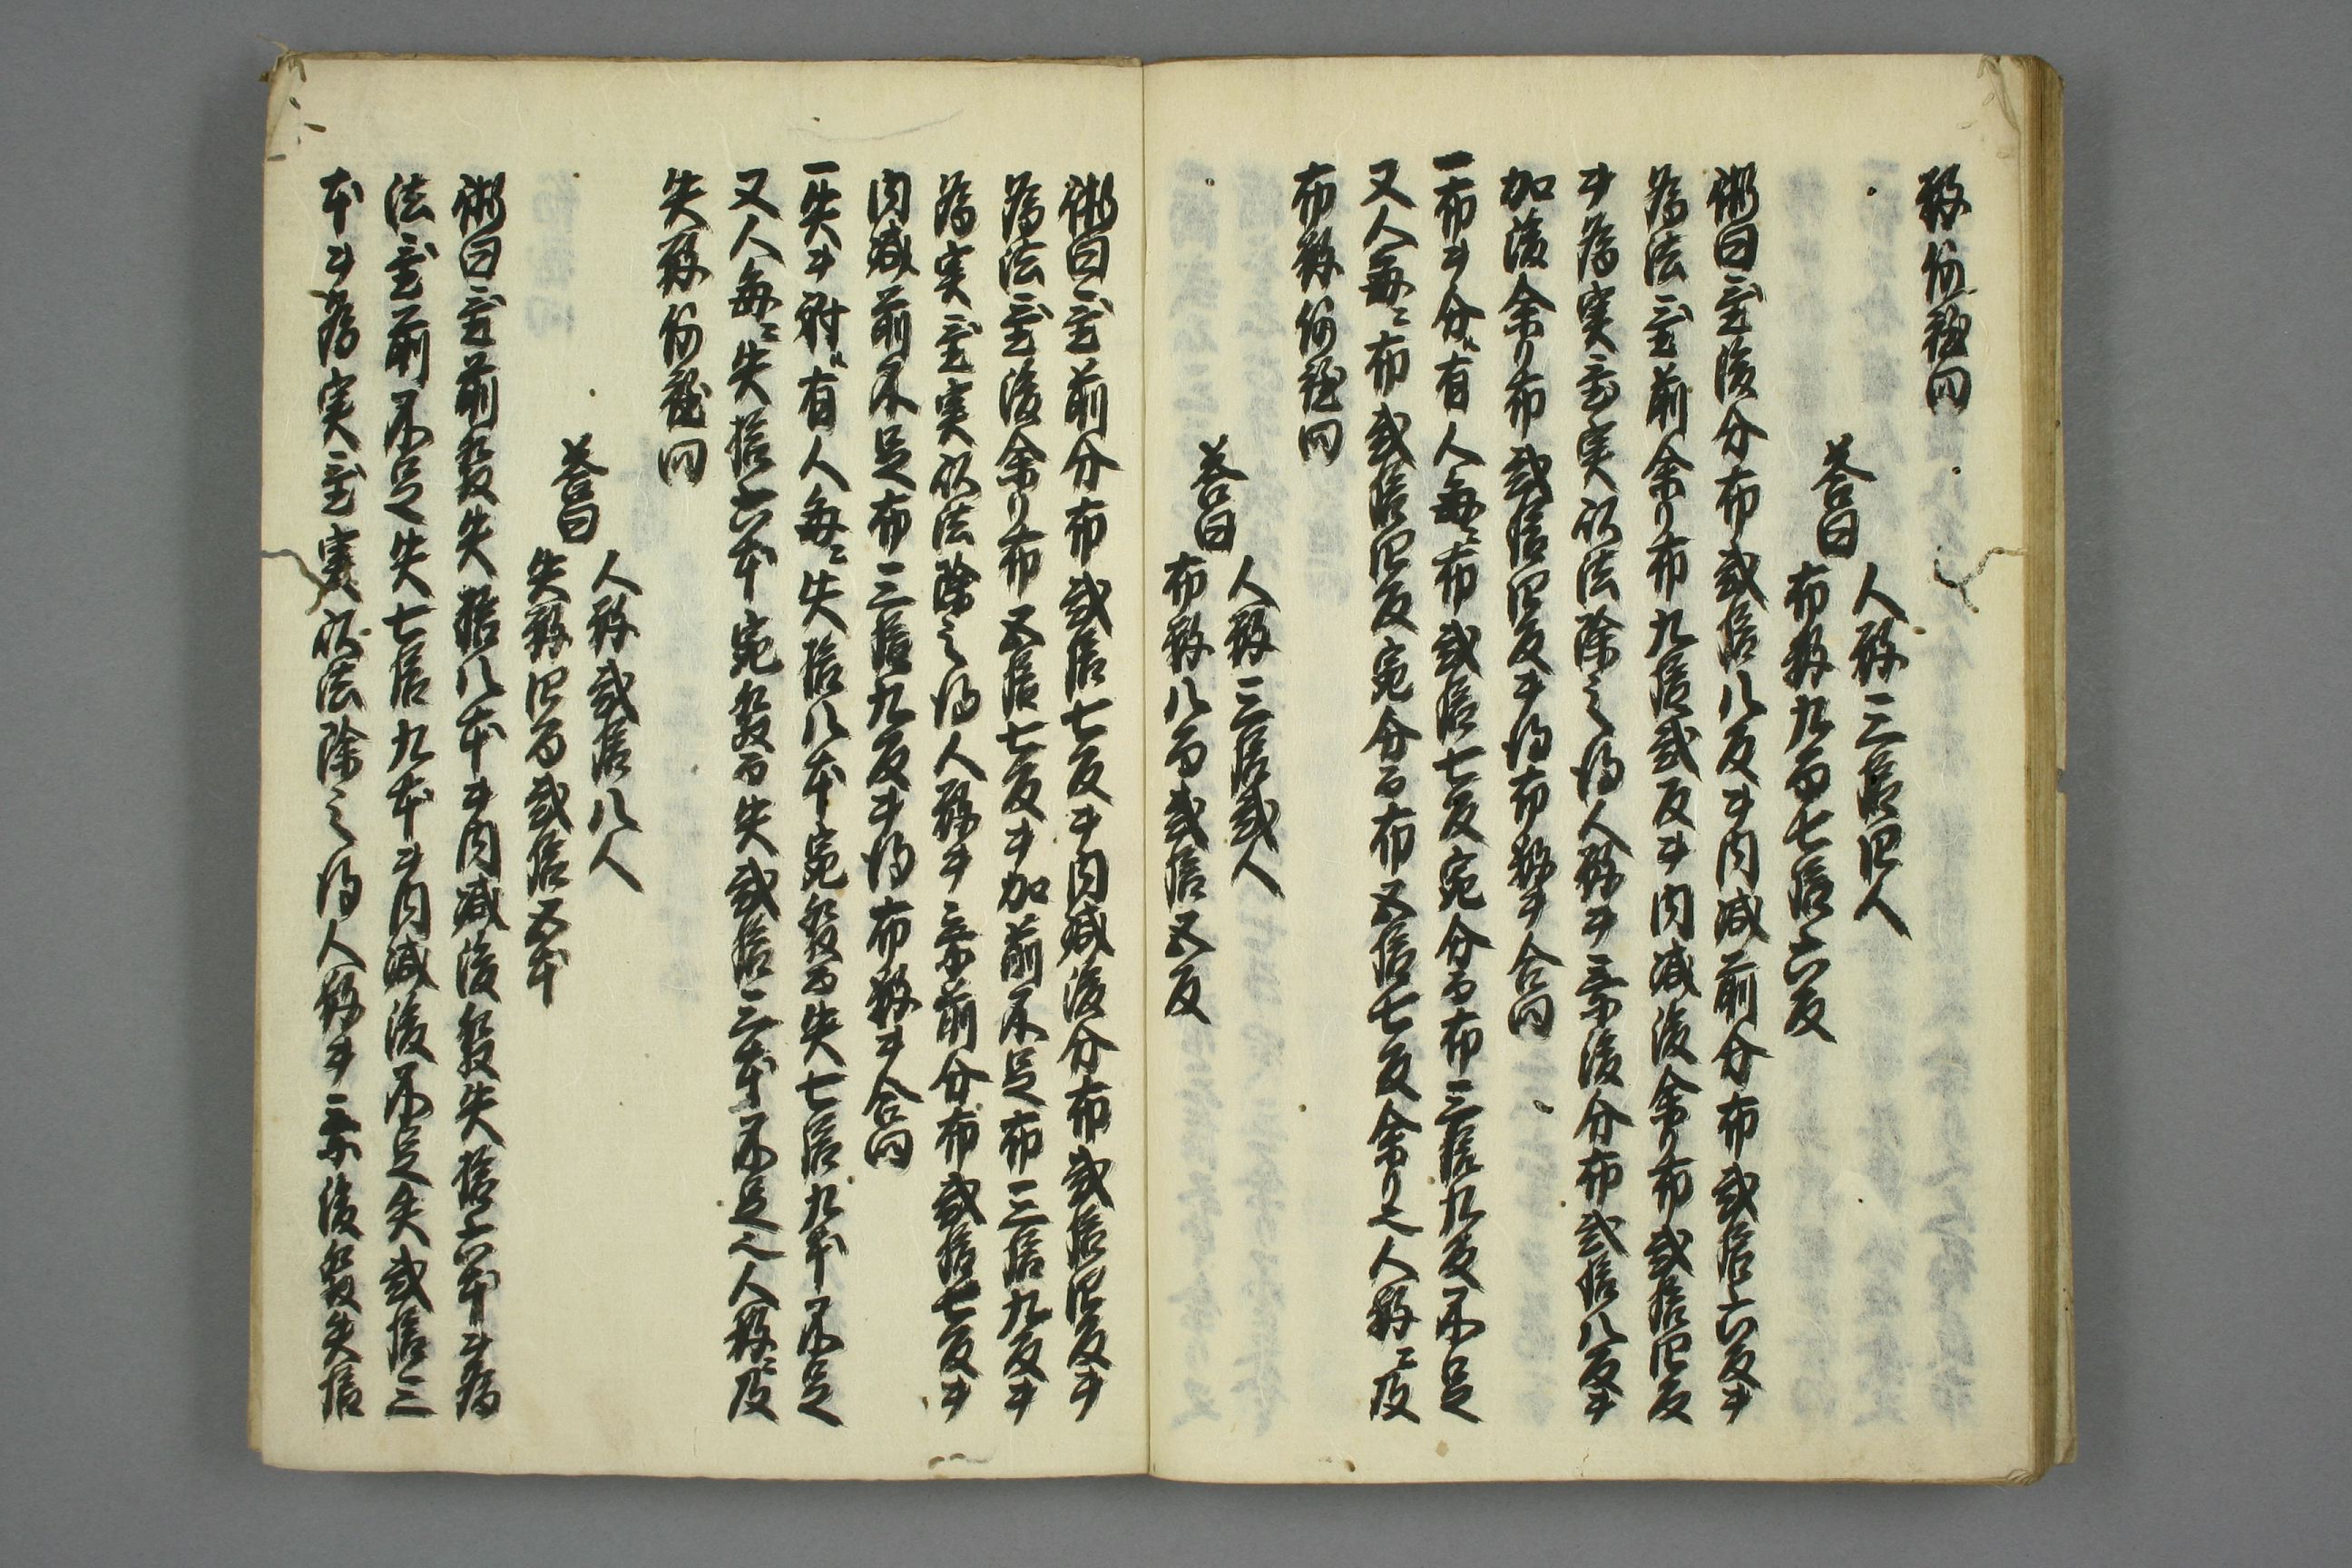 数何程問
答曰
人数三拾四人
布数九百七拾六反
術曰置後分布弐拾八反ヲ内減前分布弐拾六反ヲ
為法置前余リ布九拾弐反ヲ内減後余リ布弐拾四反
ヲ為実置実以法除之得人数ヲ乗後分布弐拾八反ヲ
加後余リ布弐拾四反ヲ得布数ヲ合問
一布ヲ分ニ有人毎ニ布弐拾七反宛分而布三拾九反不足
又人毎ニ布弐拾四反宛分而布五拾七反余リ之人数ニ及
布数何程問
答曰
人数三拾弐人
布数八百弐拾五反
術曰置前分布弐拾七反ヲ内減後分布弐拾四反ヲ
為法置後余リ布五拾七反ヲ加前不足布三拾九反ヲ
為実置実以法除之得人数ヲ乗前分布弐拾七反ヲ
内減前不足布三拾九反ヲ得布数ヲ合問
一矢ヲ射ニ有人毎ニ矢拾八本宛発而矢七拾九本不足
又人毎ニ矢拾六本宛発而矢弐拾三本不足之人数ニ及
矢数何程問
答曰
人数弐拾八人
矢数四百弐拾五本
術曰置前発矢拾八本ヲ内減後発矢拾六本ヲ為
法置前不足矢七拾九本ヲ内減後不足矢弐拾三
本ヲ為実置実以法除之得人数ヲ乗後発矢拾